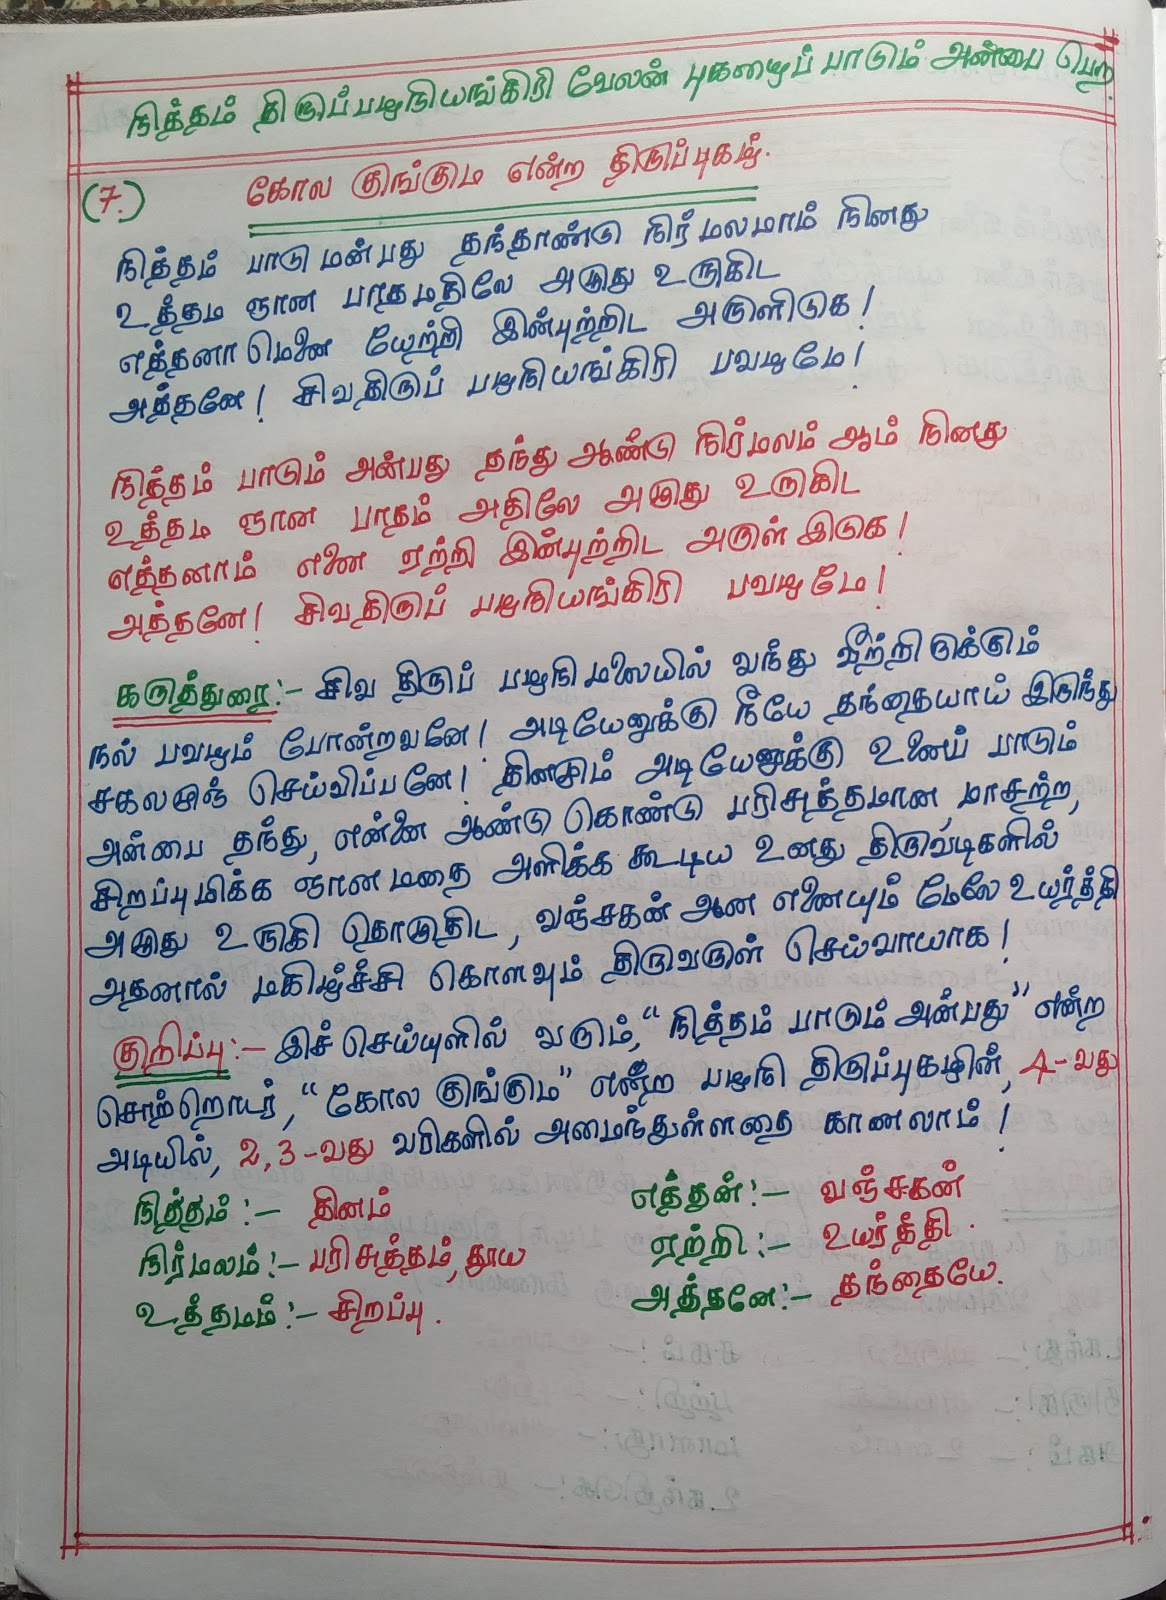 நித்தம் திருப்பழநியங்கிரி வேலன் புகழைப் பாடும் அன்பை பெற
(7.) கோல குங்கும என்ற திருப்புகழ்.
நித்தம் பாடு மன்பது தந்தாண்டு நிர்மலமாம் நினது
உத்தம ஞான பாதமதிலே அழுது உருகிட
எத்தனா மெனை யேற்றி இன்புற்றிட அருளிடுக!
அத்தனே! சிவதிருப் பழநியங்கிரி பவழமே!
நித்தம் பாடும் அன்பது தந்து ஆண்டு நிர்மலம் ஆம் நினது
உத்தம ஞான பாதம் அதிலே அழுது உருகிட
எத்தனாம் எனை ஏற்றி இன்புற்றிட அருள் இடுக!
அத்தனே! சிவதிருப் பழநியங்கிரி பவழமே!
கருத்துரை:- சிவ திருப் பழநிமலையில் வந்து வீற்றிருக்கும்
நல் பவழம் போன்றவனே! அடியேனுக்கு நீயே தந்தையாய் இருந்து
சகலமுஞ் செய்விப்பனே! தினமும் அடியேனுக்கு உனைப் பாடும்
அன்பை தந்து, என்னை ஆண்டு கொண்டு பரிசுத்தமான, மாசற்ற,
சிறப்புமிக்க ஞானமதை அளிக்க கூடிய உனது திருவடிகளில்
அழுது உருகி தொழுதிட, வஞ்சகன் ஆன எனையும் மேலே உயர்த்தி
அதனால் மகிழ்ச்சி கொளவும் திருவருள் செய்வாயாக!
குறிப்பு:- இச் செய்யுளில் வரும், "நித்தம் பாடும் அன்பது" என்ற
சொற்றொடர், "கோல குங்கும" என்ற பழநி திருப்புகழின், 4-வது
அடியில், 2,3-வது வரிகளில் அமைந்துள்ளதை காணலாம்!
நித்தம்:- தினம் எத்தன்:- வஞ்சகன்
நிர்மலம்:- பரிசுத்தம், தூய ஏற்றி:- உயர்த்தி.
உத்தமம்:- சிறப்பு. அத்தனே:- தந்தையே.